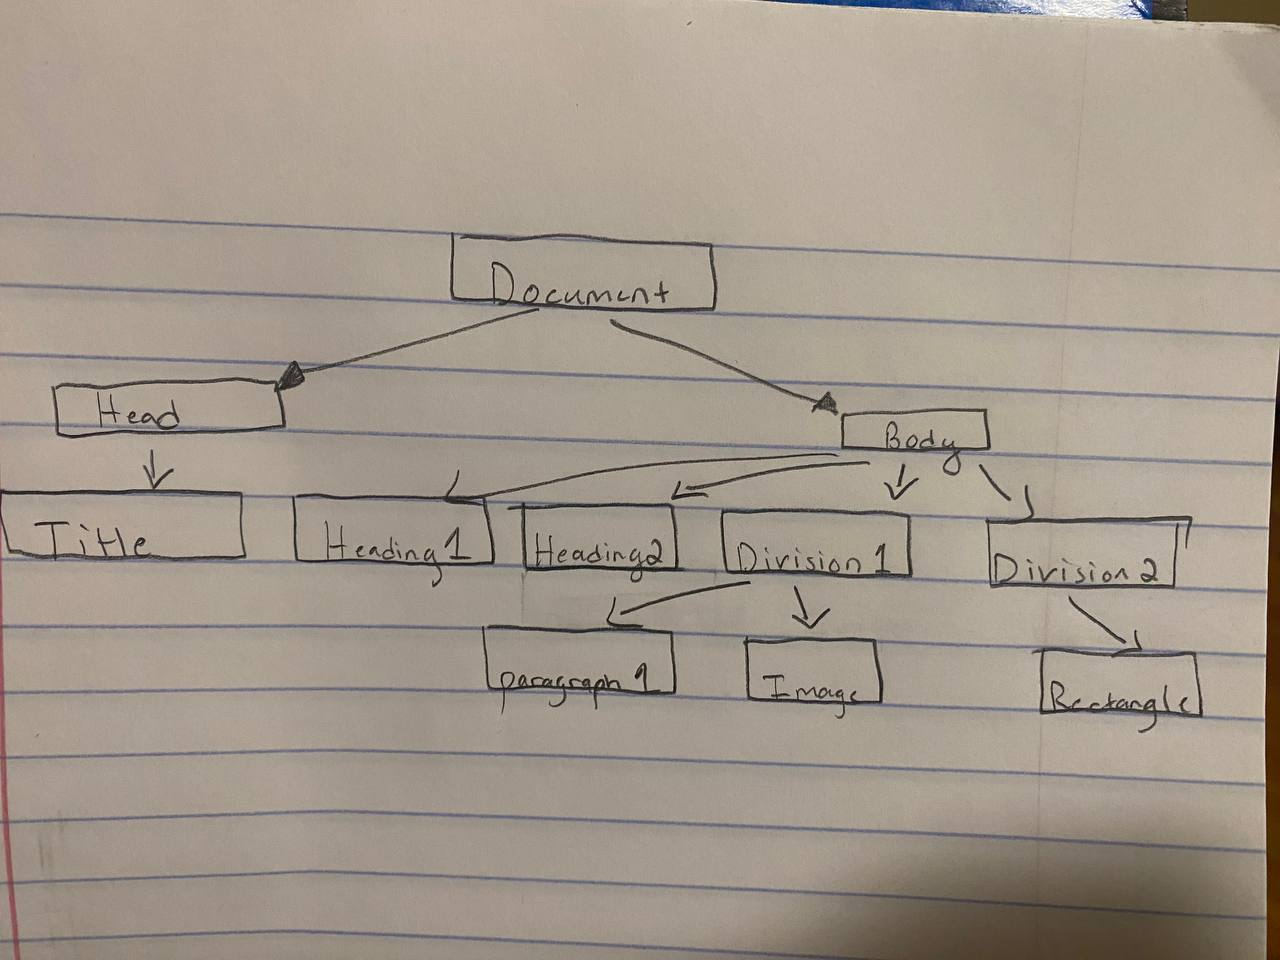 Document
Head
Body
Title
Heading 1
Heading 2
Division 1
Division 2
paragraph 1
Image
Rectangle